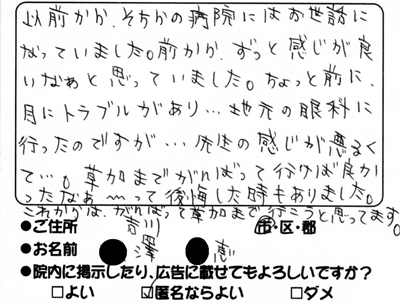 以前から、そちらの病院にはお世話に
なっていました。前から、ずっと感じが良
いなぁと思っていました。ちょっと前に、
目にトラブルがあり…地元の眼科に
行ったのですが…先生の感じが悪るく
て…。草加までがんばって行けば良か
ったなぁ〜って後悔した時もありました。
これからは、がんばって草加まで行こうと思ってます。
●ご住所 吉川 市・区・郡
●お名前 澤 恵
●院内に掲示したり、広告に載せてもよろしいですか?
□よい ☑匿名ならよい □ダメ